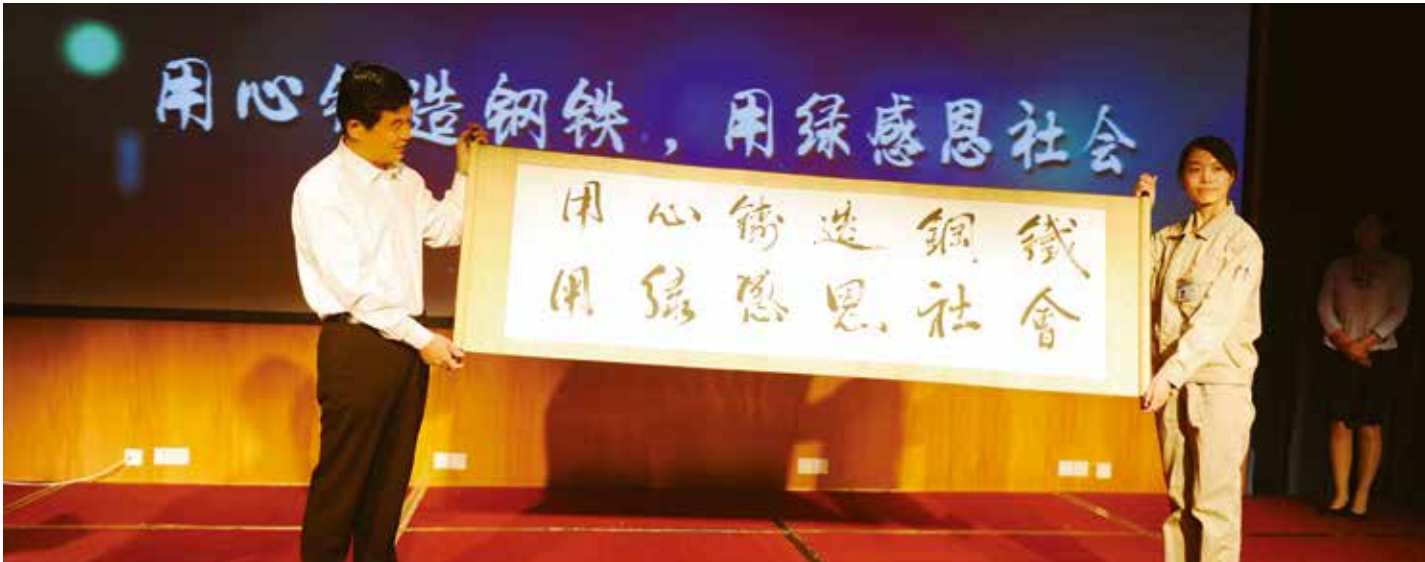 用心铸造钢铁，用绿感恩社会
用心鑄造鋼鐵
用綠感恩社會